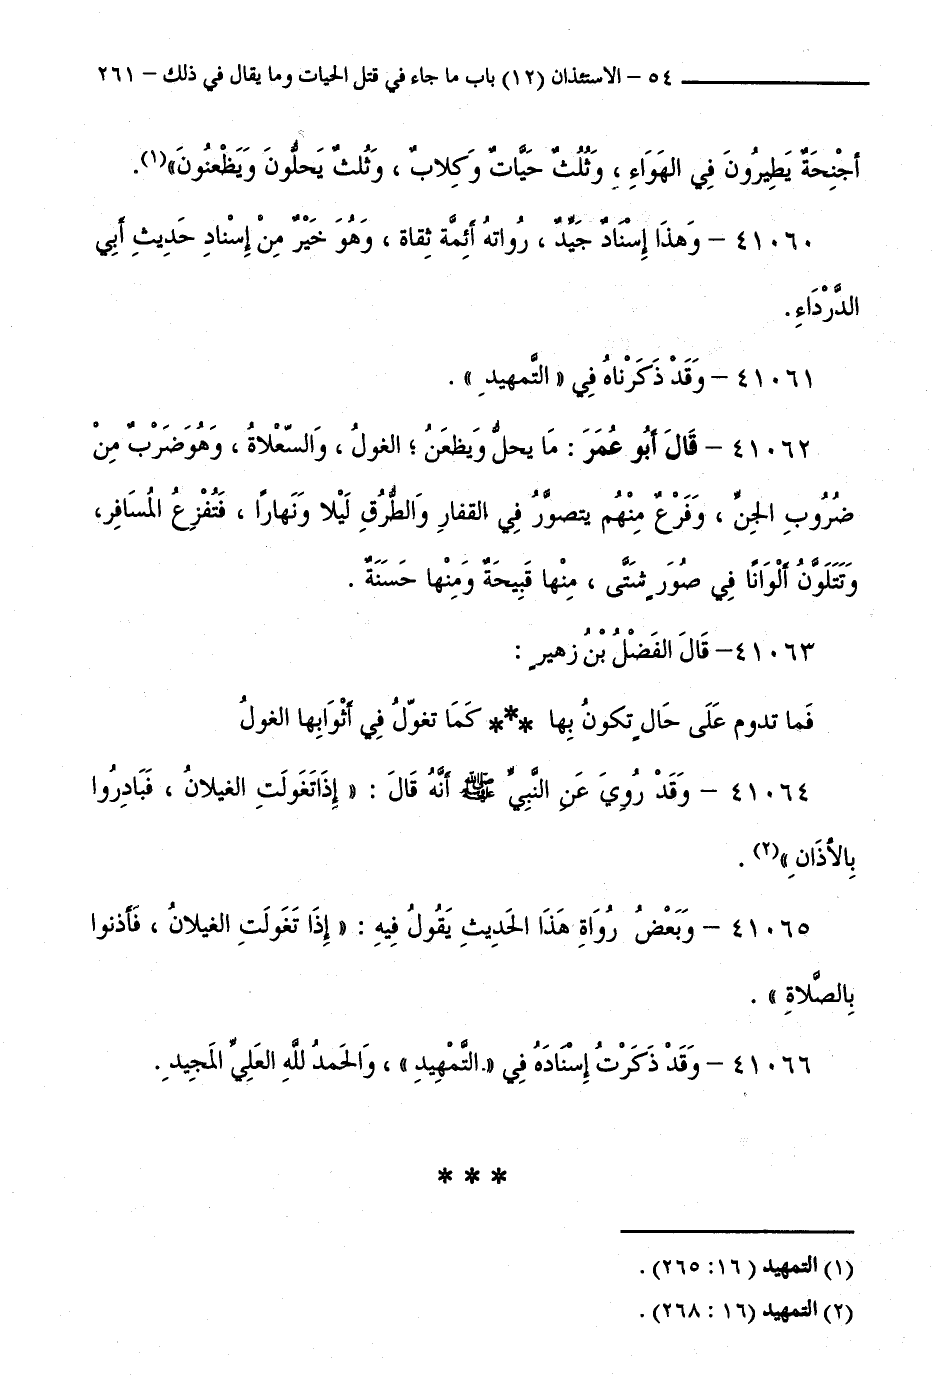 ٥٤ – الاستئذان (١٢) باب ما جاء في قتل الحيات وما يقال في ذلك – ٢٦١
أجْنِحَةٌ يَطِيرُونَ فِي الهَوَاءِ ، وَثُلُثٌ حَيَّاتٌ وَكِلابٌ ، وَثُلثٌ يَحلُّونَ وَيَظْعنُونَ»(١).
٤١٠٦٠ – وَهذَا إِسْنَادٌ جَيِّدٌ ، رُواتهُ أَئِمَّة ثِقاة ، وَهُوَ خَيْرٌ مِنْ إِسْنادِ حَدِيثِ أَبِي
الدَّرْدَاءِ.
٤١٠٦١ – وَقَدْ ذَكَرْناهُ فِي « التَّمهِيدِ » .
٤١٠٦٢ – قَالَ أَبُو عُمَرَ : مَا يحلُّ وَيظعَنُ ؛ الغولُ ، وَالسّعْلاةُ ، وَهُوَ ضَرْبٌ مِنْ
ضُرُوبِ الجِنِّ ، وَفَرْعٌ مِنْهُم يتصوَّرُ فِي القفارِ وَالطُّرُقِ لَيْلا وَنَهاراً ، فَتُفْزِعُ المُسَافِرَ،
وَتَتَلَوَّنُ أَلْوَانًا فِي صُوَرٍ شَتَّى ، مِنْها قَبِيحَةٌ وَمِنْها حَسَنَةٌ .
٤١٠٦٣– قَالَ الفَضْلُ بْنُ زهيرٍ :
فَما تدوم عَلَى حَالٍ تكونُ بِها *** كَمَا تغوّلُ فِي أَثْوَابِها الغولُ
٤١٠٦٤ – وَقَدْ رُوِيَ عَنِ النَّبِيِّ ﷺ أَنَّهُ قَالَ : « إِذَاتَغَولَتِ الغيلانُ ، فَبَادِرُوا
بِالأَذَانِ»(٢) .
٤١٠٦٥ – وَبَعْضُ رُوَاةِ هَذَا الحَدِيثِ يَقُولُ فِيهِ : « إِذَا تَغَولَتِ الغيلانُ ، فَأَذنوا
بِالصَّلاةِ » .
٤١٠٦٦ – وَقَدْ ذَكَرْتُ إِسْنَادَهُ فِي « التَّمْهِيدِ» ، وَالحَمدُ للَّهِ العَلِيِّ المَجِيدِ.
* * *
(١) التمهيد ( ١٦ : ٢٦٥) .
(٢) التمهيد (١٦ : ٢٦٨) .